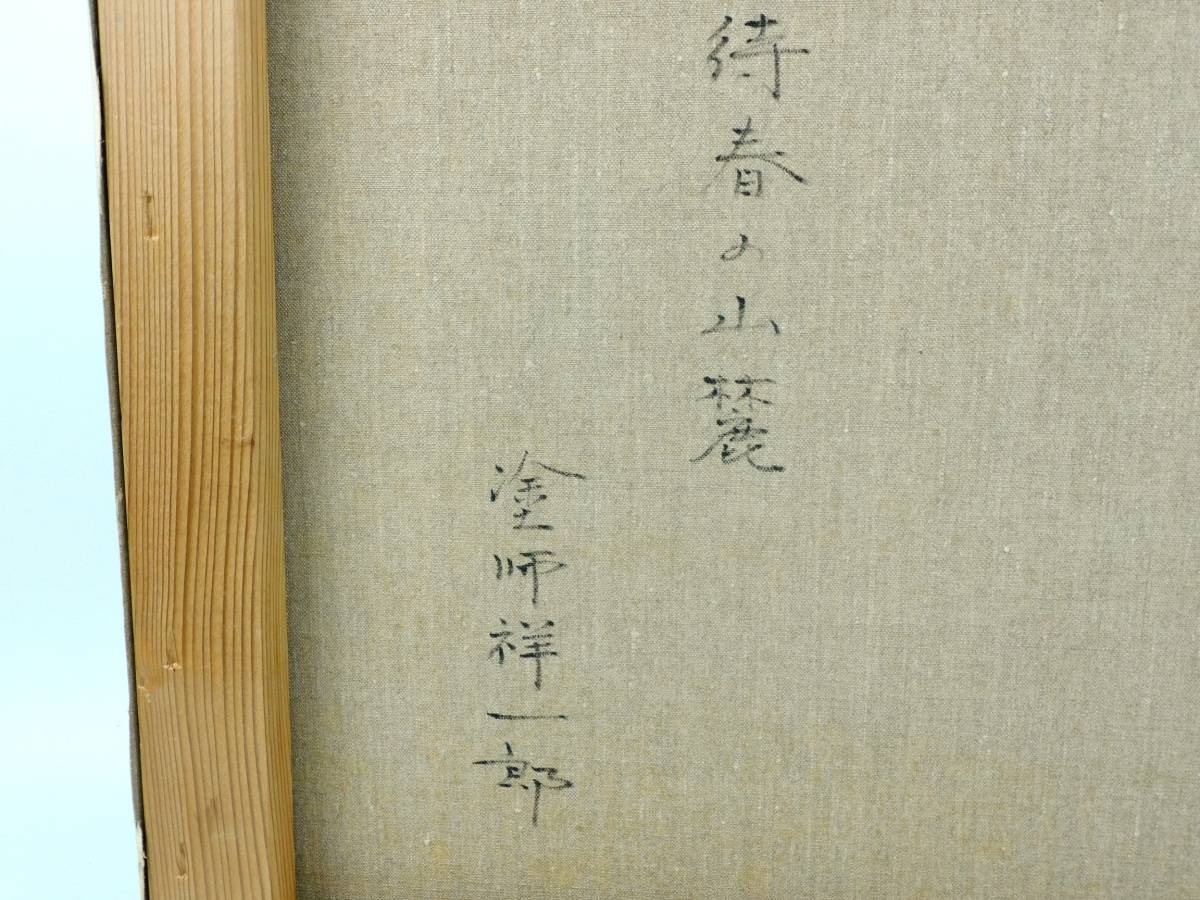 待春の山麓
塗師祥一郎